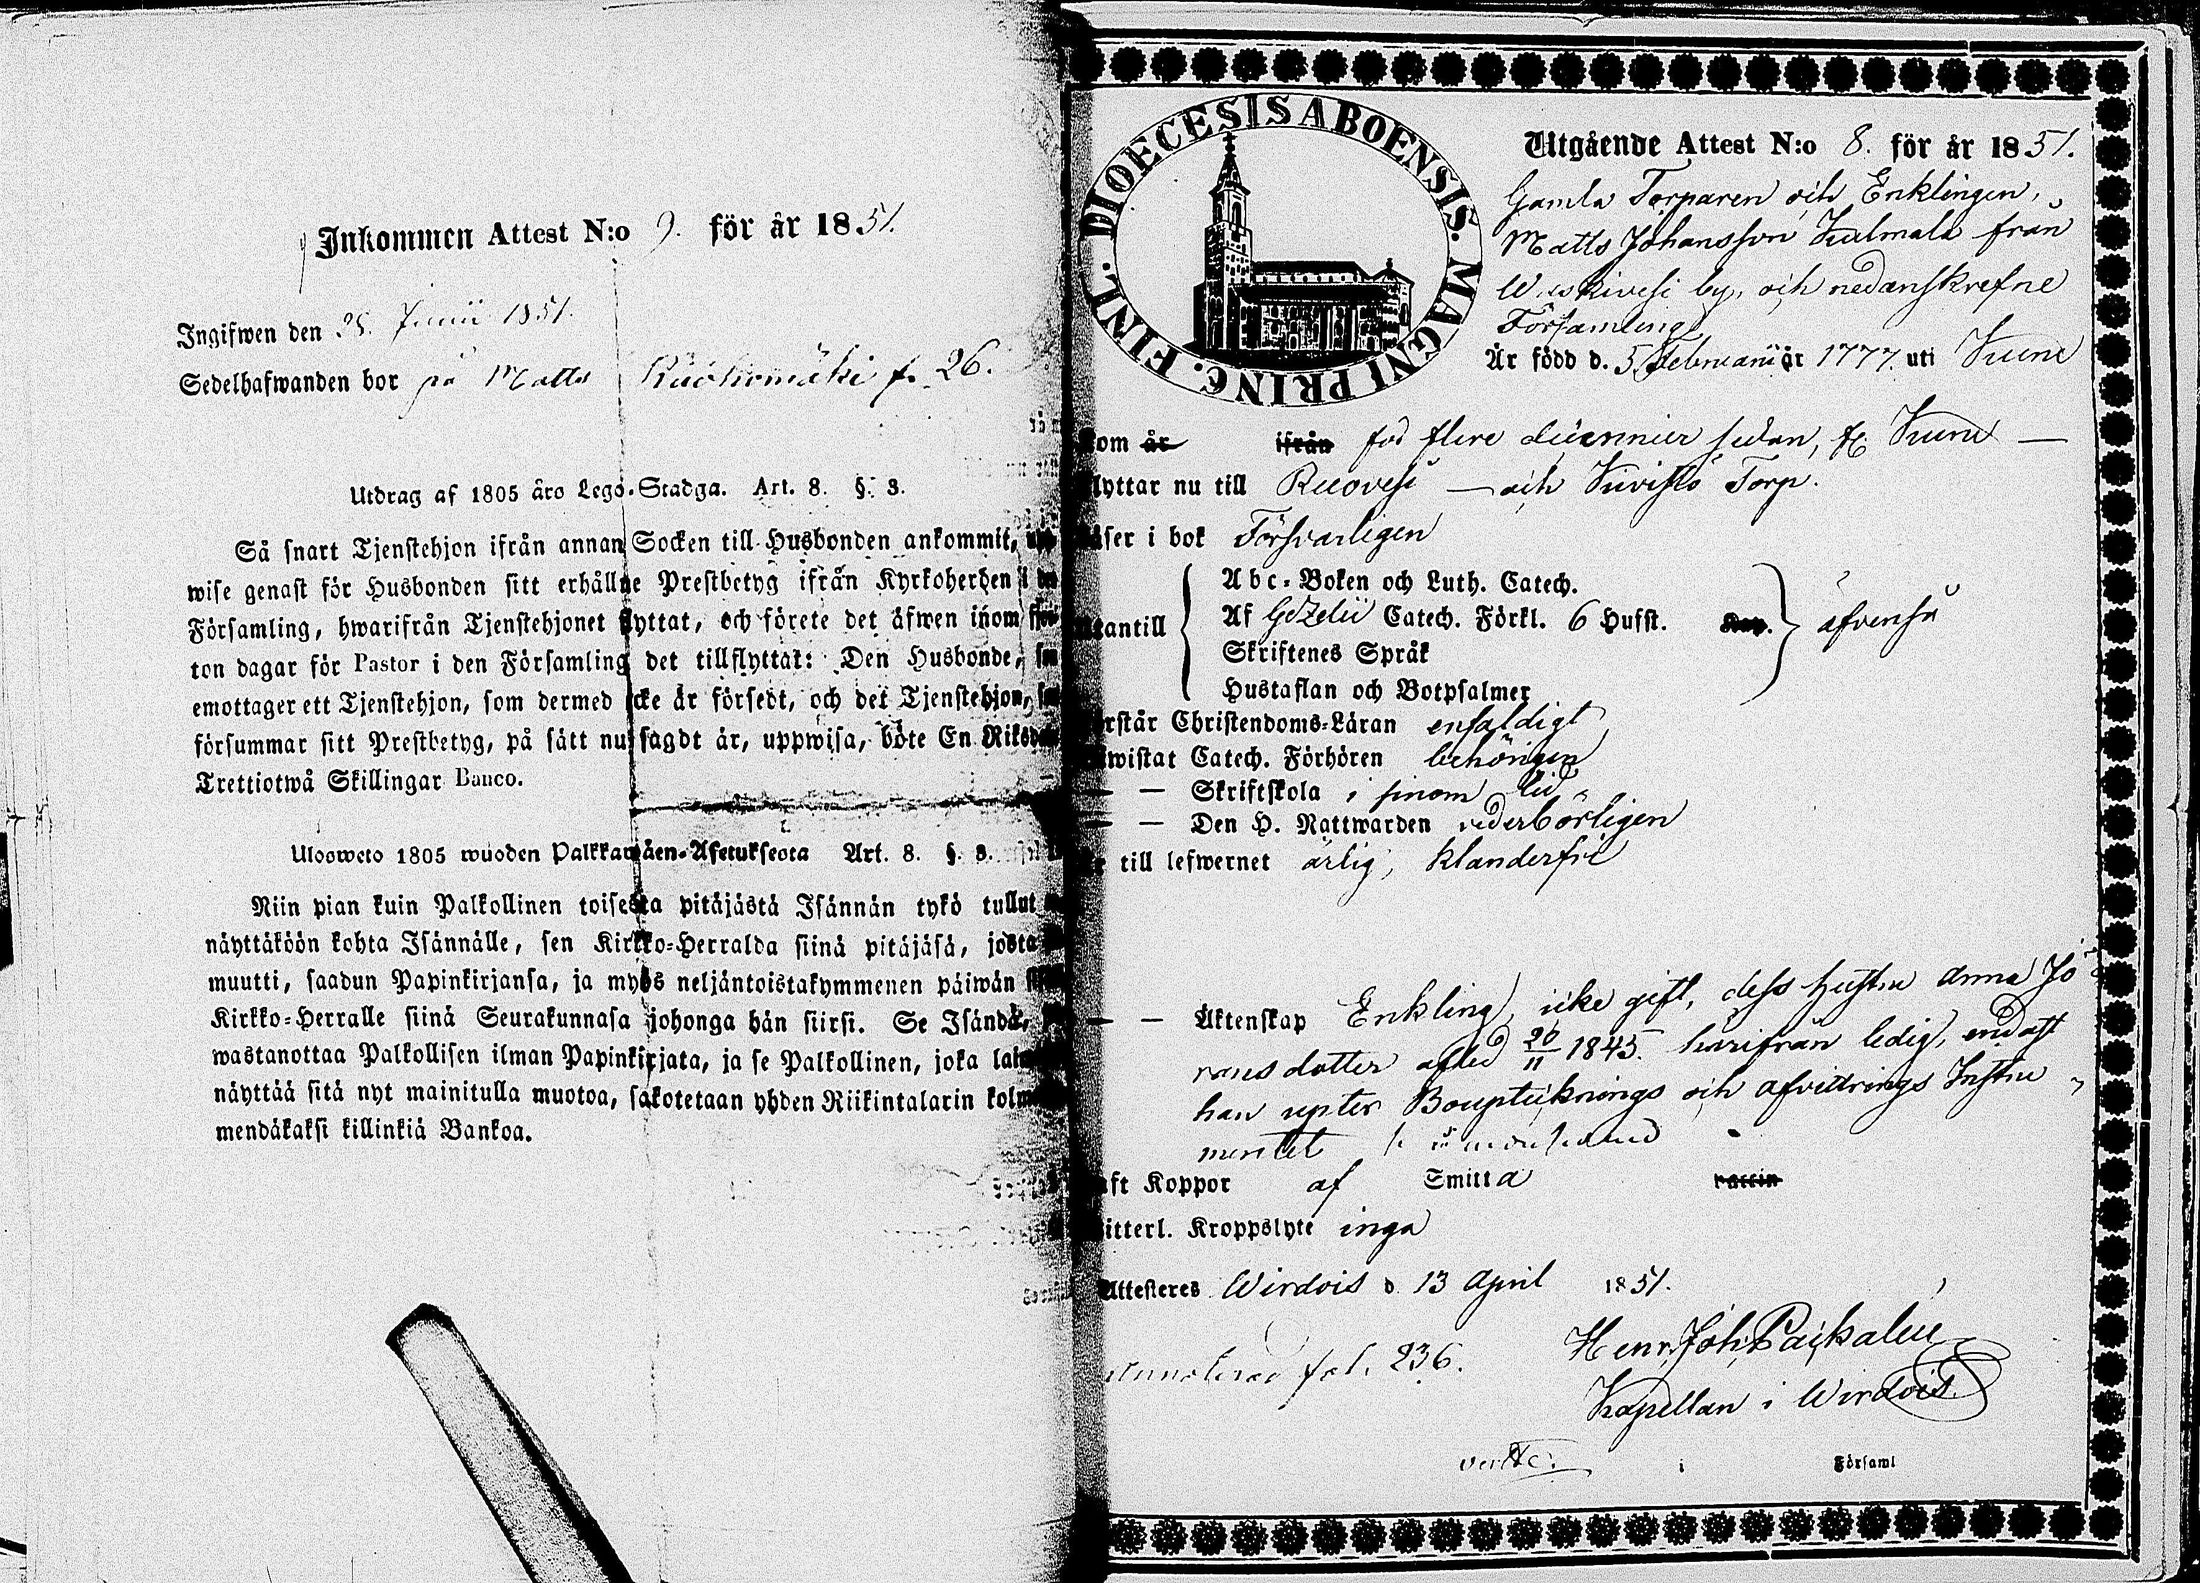 Inkommen Attest N:o 9. för år 1851.
Ingifwen den 28. Junii 1851.
Sedelhafwanden bor på Matts Ruokomäki f. 26.
Utdrag af 1805 års Lego-Stadga. Art. 8. §. 3.
Så snart Tjenstehjon ifrån annan Socken till Husbonden ankommit,
wise genast för Husbonden sitt erhållne Prestbetyg ifrån Kyrkoherden i
Församling, hwarifrån Tjenstehjonet flyttat, och förete det äfwen inom
ton dagar för Pastor i den Församling det tillflyttat: Den Husbonde,
emottager ett Tjenstehjon, som dermed icke är försedt, och det Tjenstehjon,
försummar sitt Prestbetyg, på sätt nu sagdt är, uppwisa, böte En Riksd
Trettiotwå Skillingar Banco.
Ulosweto 1805 wuoden Palkkawäen-Asetuksesta Art. 8. §. 3.
Niin pian kuin Palkollinen toisesta pitäjästä Isännän tykö tullut
näyttäköön kohta Isännälle, sen Kirkko-Herralda siinä pitäjäsä, josta
muutti, saadun Papinkirjansa, ja myös neljäntoistakymmenen päiwän
Kirkko-Herralle siinä Seurakunnasa johonga hän siirsi. Se Isändä,
wastanottaa Palkollisen ilman Papinkirjata, ja se Palkollinen, joka
näyttää sitä nyt mainitulla muotoa, sakotetaan yhden Riikintalarin kolm
mendäkaksi killinkiä Bankoa.
DIOECESIS ABOENSIS. MAGNI PRINC. FINL.
Utgående Attest N:o 8. för år 1851.
Gamla Torparen och Enklingen,
Matts Johansson Kulmala från
by, och nedanskrefne
Församling
Är född d. 5 Februarii år 1777. uti Kuru
kom år ifrån för flere decennier sedan, fr. Kuru
flyttar nu till Ruovesi — och Kivistö Torp.
läser i bok Försvarligen
utantill
Abc-Boken och Luth. Catech.
Af Gezelii Catech. Förkl. 6 Hufst. Kap. äfvenså
Skriftenes Språk
Hustaflan och Botpsalmer
förstår Christendoms-Läran enfaldigt
bewistat Catech. Förhören behörigen
— — Skriftskola i sinom tid
— — Den H. Nattwarden vederbörligen
är till lefwernet ärlig, klanderfri
— — Äktenskap Enkling, icke gift, dess hustru Anna Jo
ransdotter afled 20/11 1845. härifrån ledig, endast
han upter Bouptecknings och afvittrings Instru
mentet
haft Koppor af Smitta vaccin
witterl. Kroppslyte inga
Attesteres Wirdois d. 13 April 1851.
Henr. Joh. Paqvalin
Kapellan i Wirdois.
Annoterad fol. 236.
vertte: i Församl